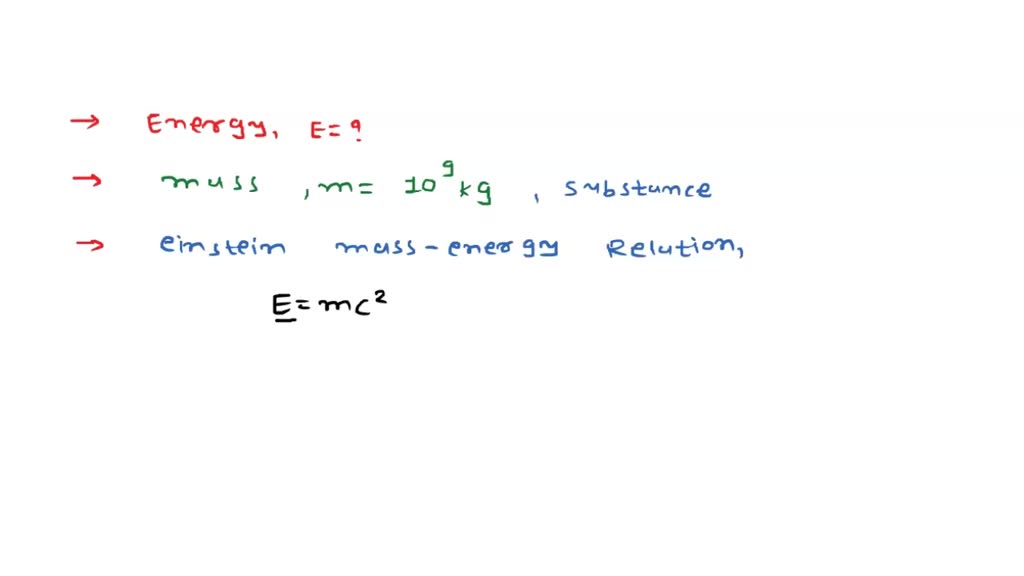 → Energy, E = ?
→ muss , m = 10⁹ kg , substance
→ einstein mass-energy Relution,
E = mc²